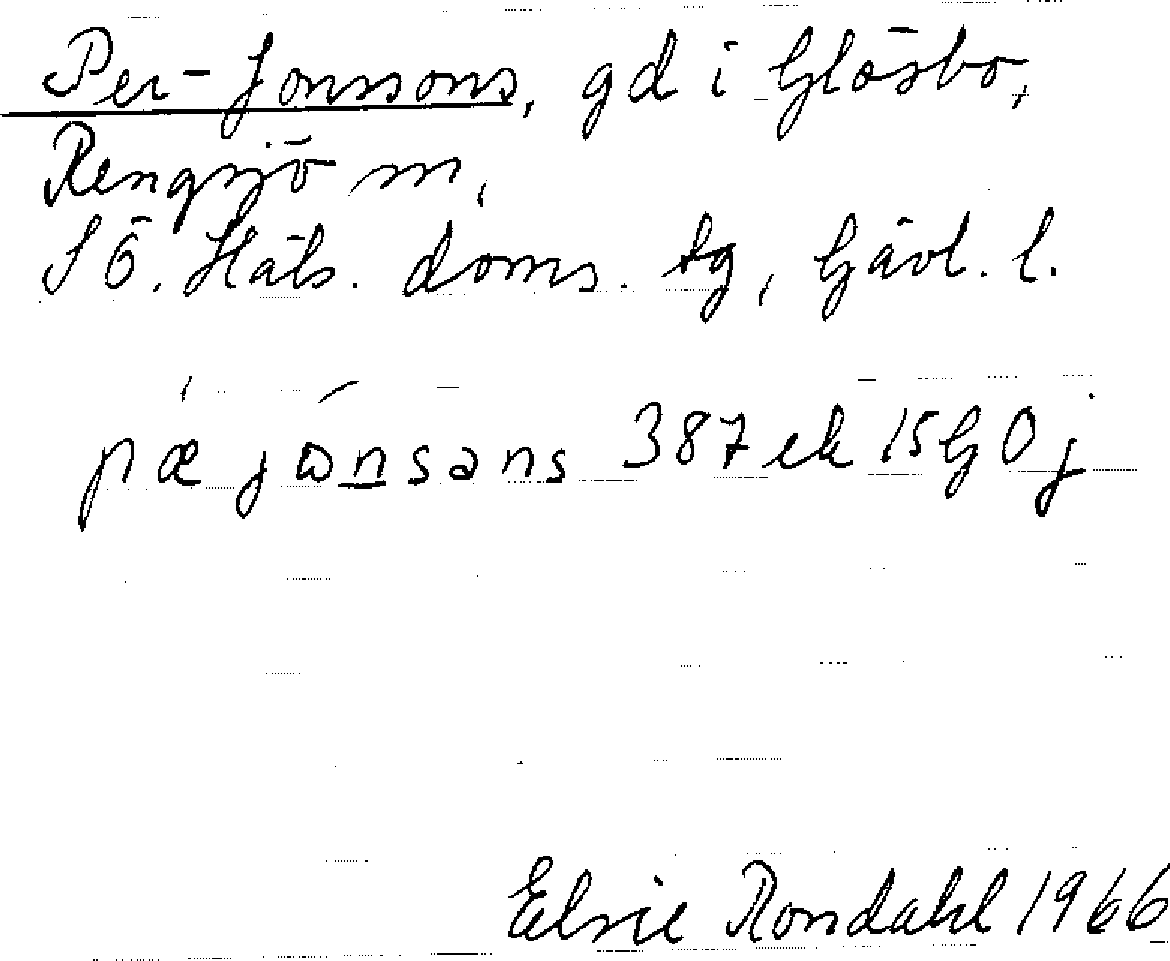 Per-Jonssons, gd i Glösbo,
Rengsjö sn,
SÖ. Häls. doms. tg, Gävl. l.
pæ jɷnsəns 387 ek 15G0j
Elsie Rondahl 1966